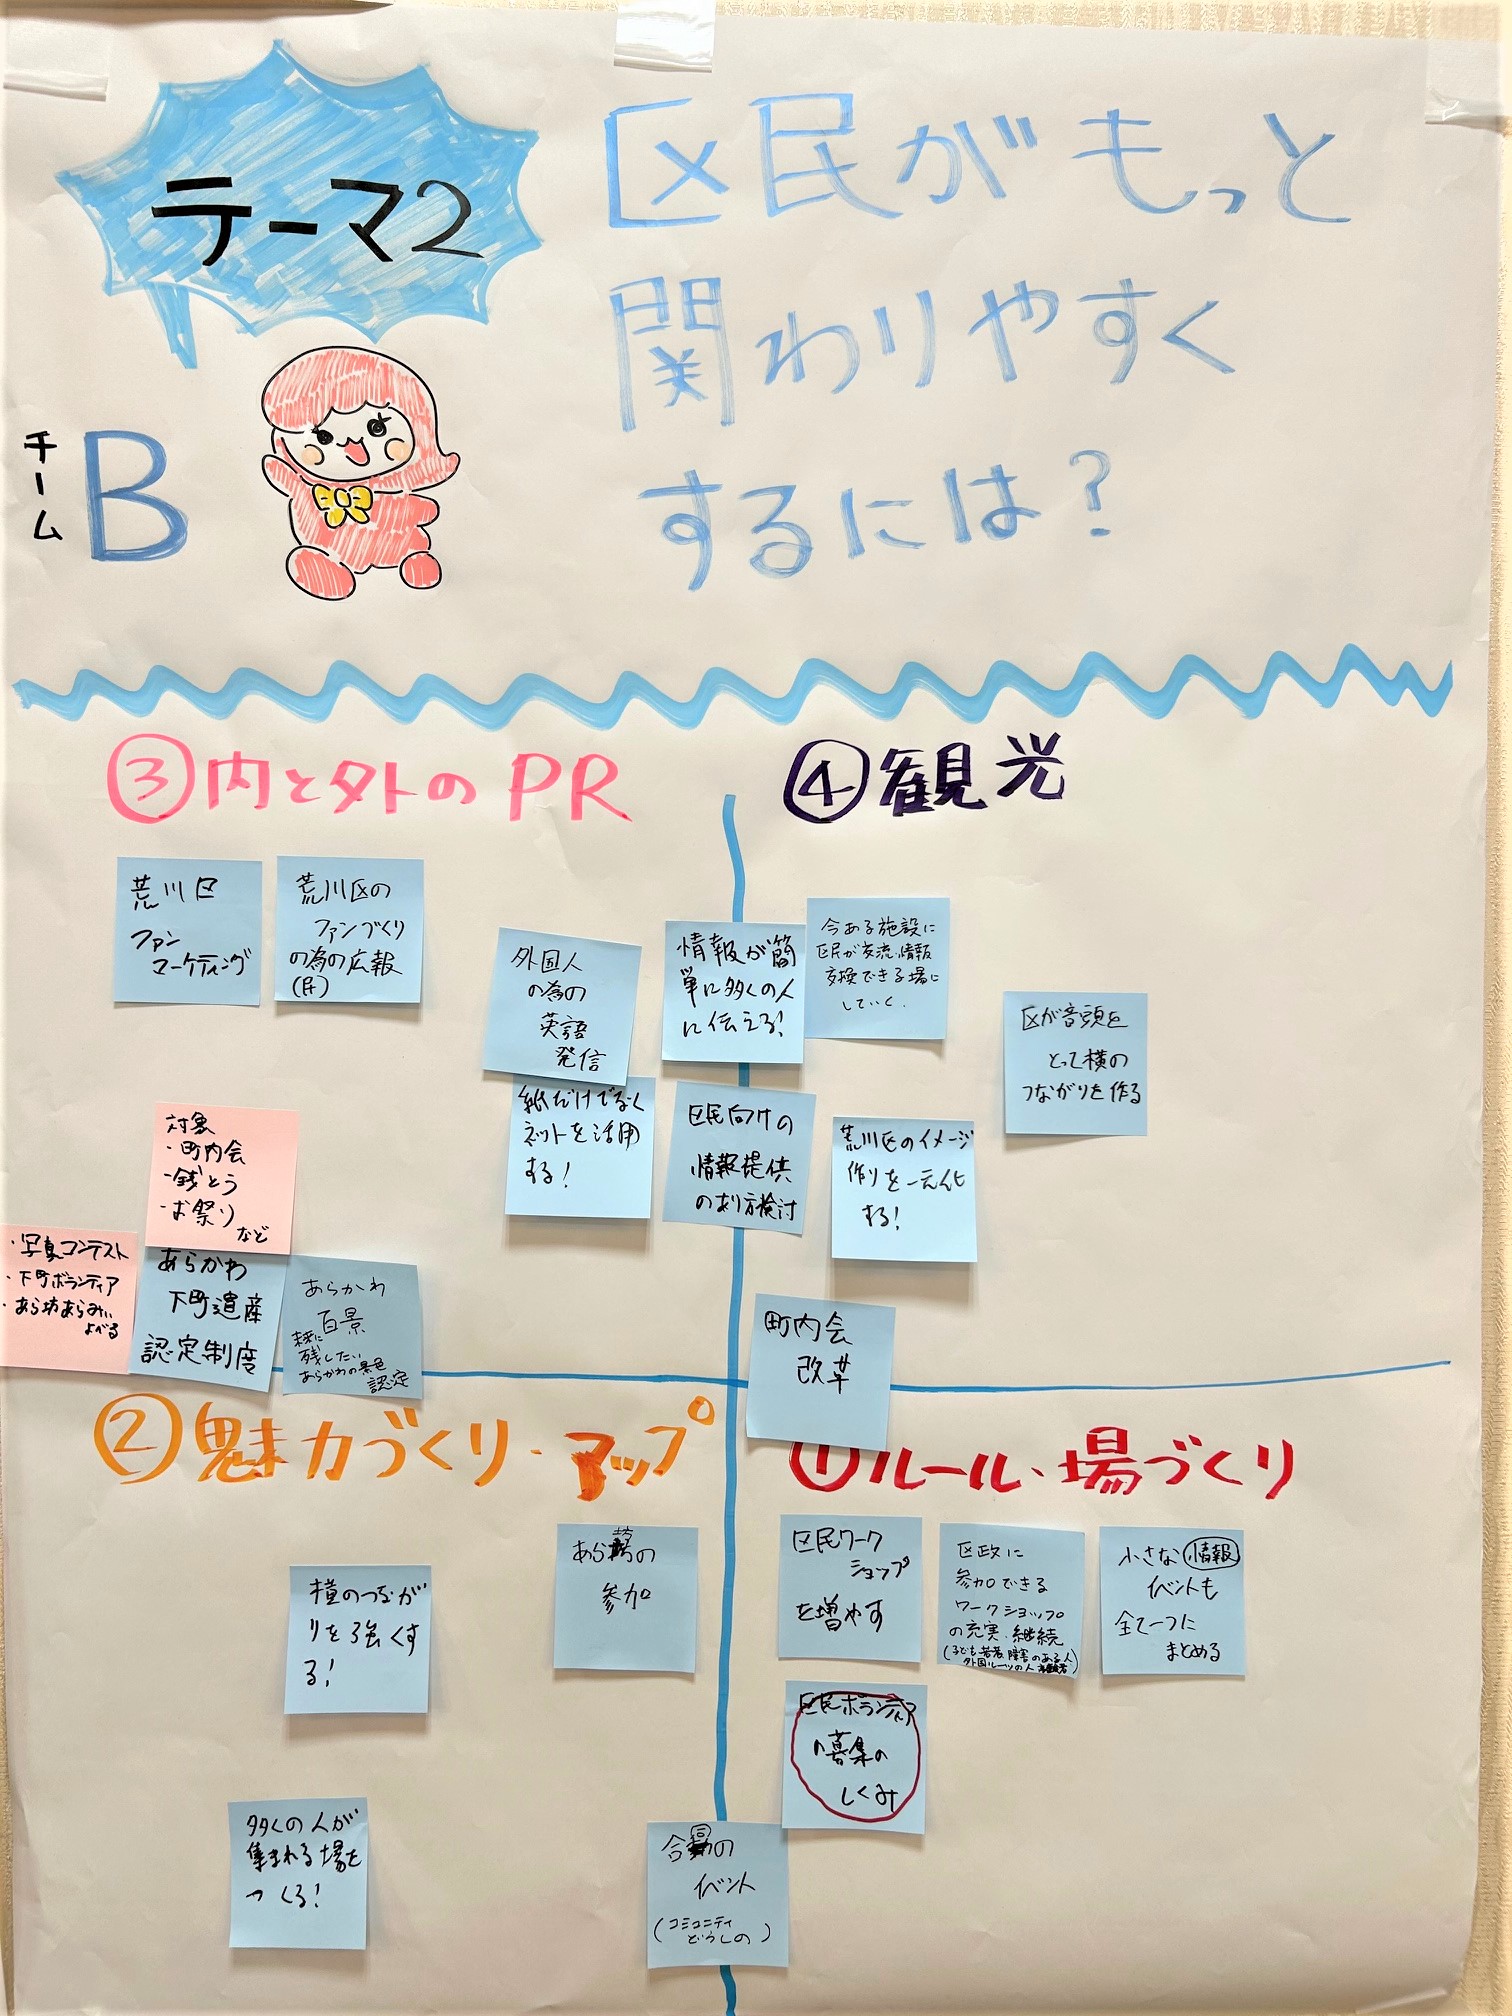 テーマ2
区民がもっと
関わりやすく
するには?
チーム
B
③内と外のPR
荒川区
ファン
マーケティング
荒川区の
ファンづくり
の為の広報
外国人
の為の
英語
発信
情報が簡
単に多くの人
に伝える!
紙だけでなく
ネットを活用
する!
区民向けの
情報提供
のあり方検討
対象
・町内会
・銭とう
・お祭り
など
・写真コンテスト
・下町ボランティア
・あら坊あらみぃ
よべる
あらかわ
下町遺産
認定制度
あらかわ
百景
未来に
残したい
あらかわの景色
認定
④観光
今ある施設に
区民が交流、情報
交換できる場に
していく.
区が音頭を
とって横の
つながりを作る
荒川区のイメージ
作りを一元化
する!
町内会
改革
②魅力づくり・アップ
あら坊の
参加
横のつなが
りを強くす
る!
多くの人が
集まれる場を
つくる!
合同の
イベント
(コミュニティ
どうしの)
①ルール・場づくり
区民ワーク
ショップ
を増やす
区政に
参加できる
ワークショップ
の充実・継続
(子ども若者、障害のある人
外国ルーツの人
小さな情報
イベントも
全て一つに
まとめる
区民ボランティア
の募集の
しくみ